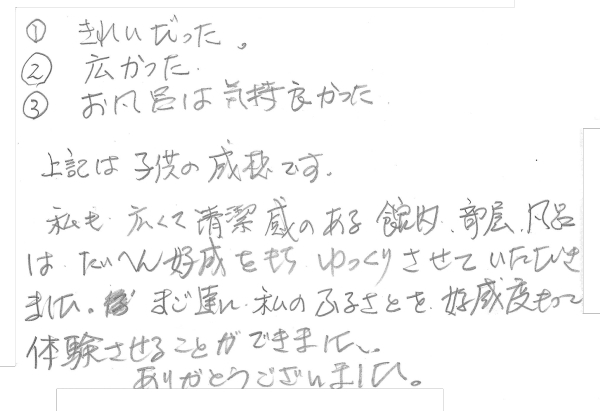 ① きれいだった。
② 広かった.
③ お風呂は気持良かった
上記は子供の感想です.
私も 広くて清潔感のある館内、部屋、風呂
は たいへん好感をもち ゆっくりさせていただき
ました。 まご達に 私のふるさとを 好感度もって
体験させることができました.
ありがとうございました。